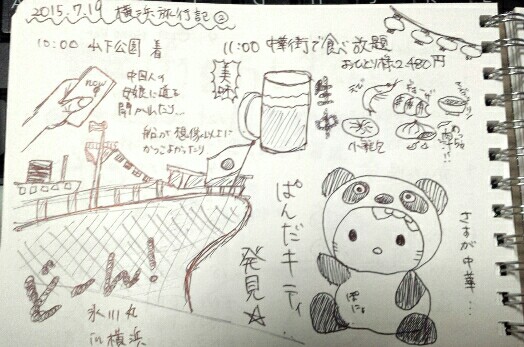 2015.7.19 横浜旅行記②
10:00 山下公園 着
now
中国人の
女の娘に道を
聞かれたり...
船が想像以上に
かっこよかったり
どーん!
氷川丸
in 横浜
11:00 中華街で食べ放題
おひとり様2480円
美味
生中
小籠包
ぱんだキティ
発見☆
ぱにょ
さすが中華...